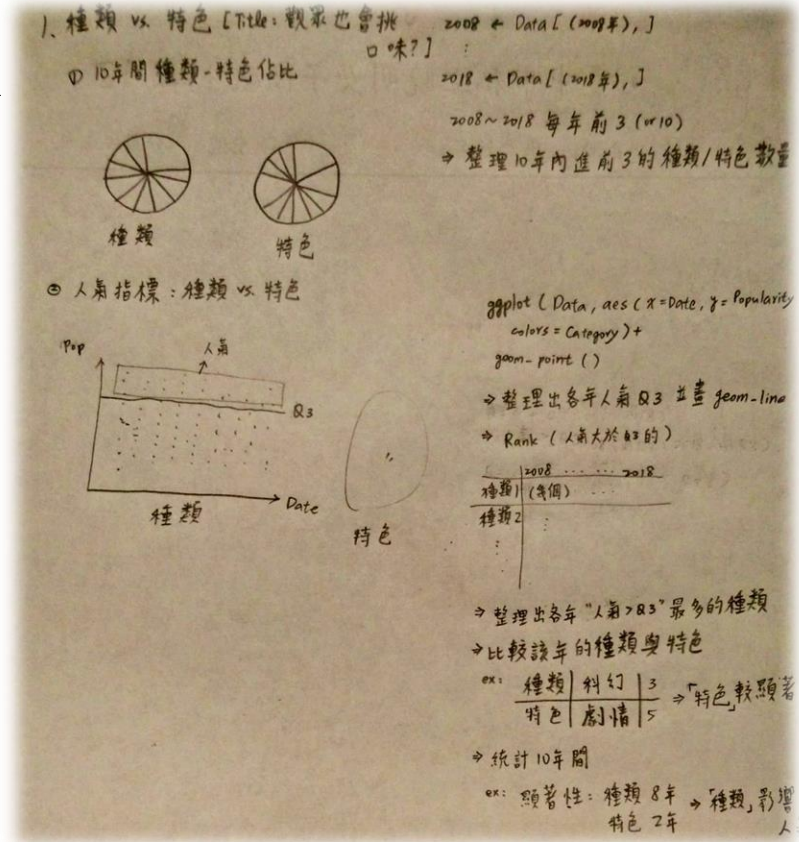 1、種類 vs. 特色 [Title: 觀眾也會挑
口味?]
① 10年間種類-特色佔比
種類
特色
② 人氣指標：種類 vs. 特色
Pop
人氣
Q3
Date
種類
特色
2008 ← Data[(2008年),]
:
2018 ← Data[(2018年),]
2008~2018 每年前3 (or 10)
⇒ 整理10年內進前3的種類/特色數量
ggplot (Data, aes (x=Date, y=Popularity
colors = Category) +
geom-point ()
⇒ 整理出各年人氣Q3 並畫 geom-line
⇒ Rank (人氣大於Q3的)
2008 ... ... 2018
種類1 (幾個) ...
種類2 :
:
⇒ 整理出各年"人氣>Q3"最多的種類
⇒ 比較該年的種類與特色
ex: 種類 科幻 3
特色 劇情 5 ⇒「特色」較顯著
⇒ 統計10年間
ex: 顯著性：種類 8年 ⇒「種類」影響
特色 2年 人